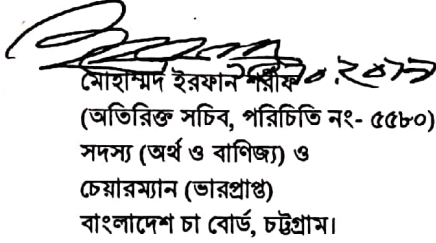 মোহাম্মদ ইরফান শরীফ
(অতিরিক্ত সচিব, পরিচিতি নং- ৫৫৮০)
সদস্য (অর্থ ও বাণিজ্য) ও
চেয়ারম্যান (ভারপ্রাপ্ত)
বাংলাদেশ চা বোর্ড, চট্টগ্রাম।